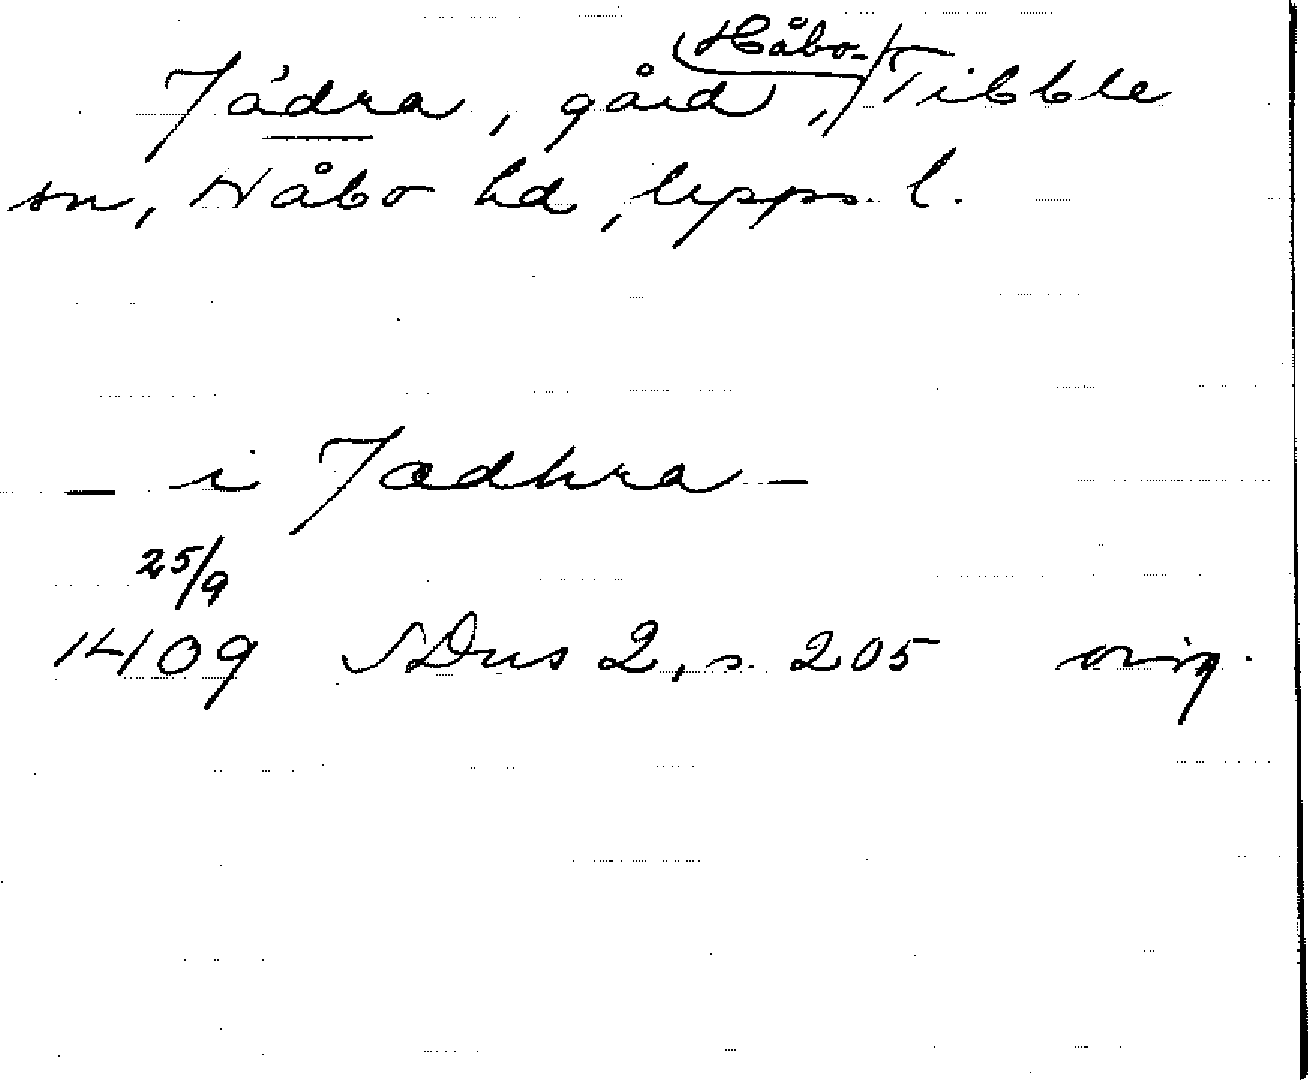 Jädra, gård, Håbo-Tibble
sn, Håbo hd, Upps. l.
— i Jædhra —
25/9
1409 SDns 2, s. 205 orig.